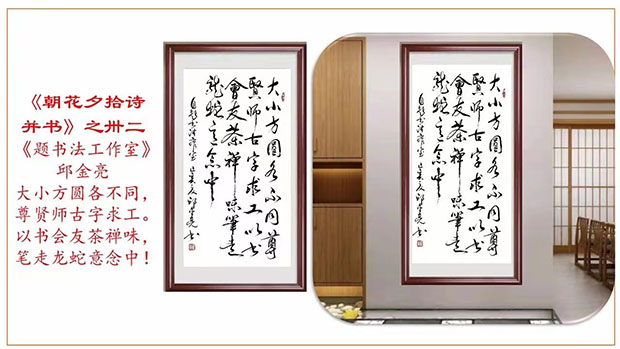 《朝花夕拾诗
并书》之卅二
《题书法工作室》
邱金亮
大小方圆各不同，
尊贤师古字求工。
以书会友茶禅味，
笔走龙蛇意念中！
大小方圆各不同尊
贤师古字求工以书
會友茶禅味筆走
龍蛇意念中
大小方圆各不同尊
贤师古字求工以书
會友茶禅味筆走
龍蛇意念中